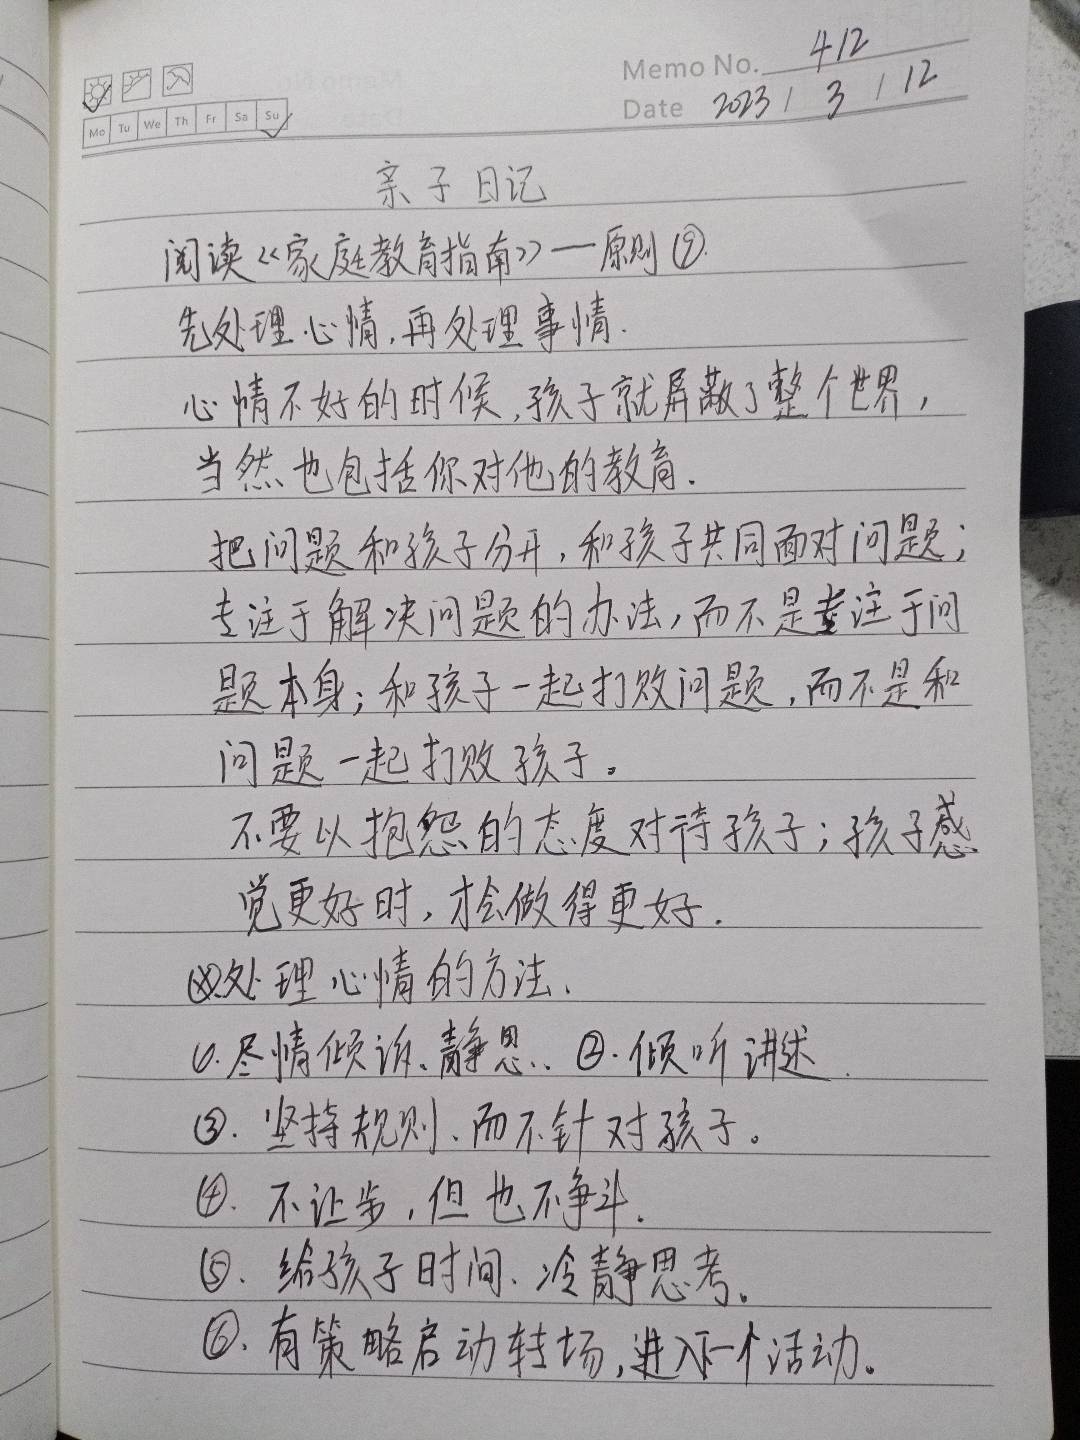 Memo No. 412
Mo Tu We Th Fr Sa Su
Date 2023 / 3 / 12
亲子日记
阅读《家庭教育指南》—原则⑨.
先处理心情,再处理事情.
心情不好的时候,孩子就屏蔽了整个世界,
当然也包括你对他的教育.
把问题和孩子分开,和孩子共同面对问题;
专注于解决问题的办法,而不是专注于问
题本身;和孩子一起打败问题,而不是和
问题一起打败孩子。
不要以抱怨的态度对待孩子;孩子感
觉更好时,才会做得更好.
处理心情的方法.
①.尽情倾诉、静思.. ②.倾听讲述.
③. 坚持规则、而不针对孩子。
④. 不让步,但也不争斗.
⑤. 给孩子时间、冷静思考。
⑥. 有策略启动转场,进入下一个活动。